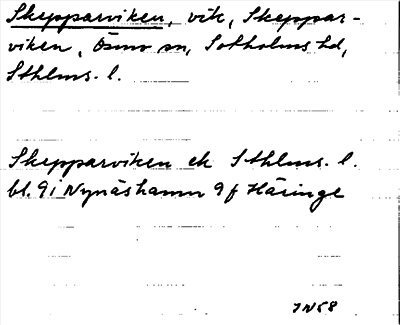 Skepparviken, vik, Skeppar-
viken, Ösmo sn, Sotholms hd,
Sthlms. l.
Skepparviken ek Sthlms. l.
bl. 9i Nynäshamn 9f Häringe
JN58